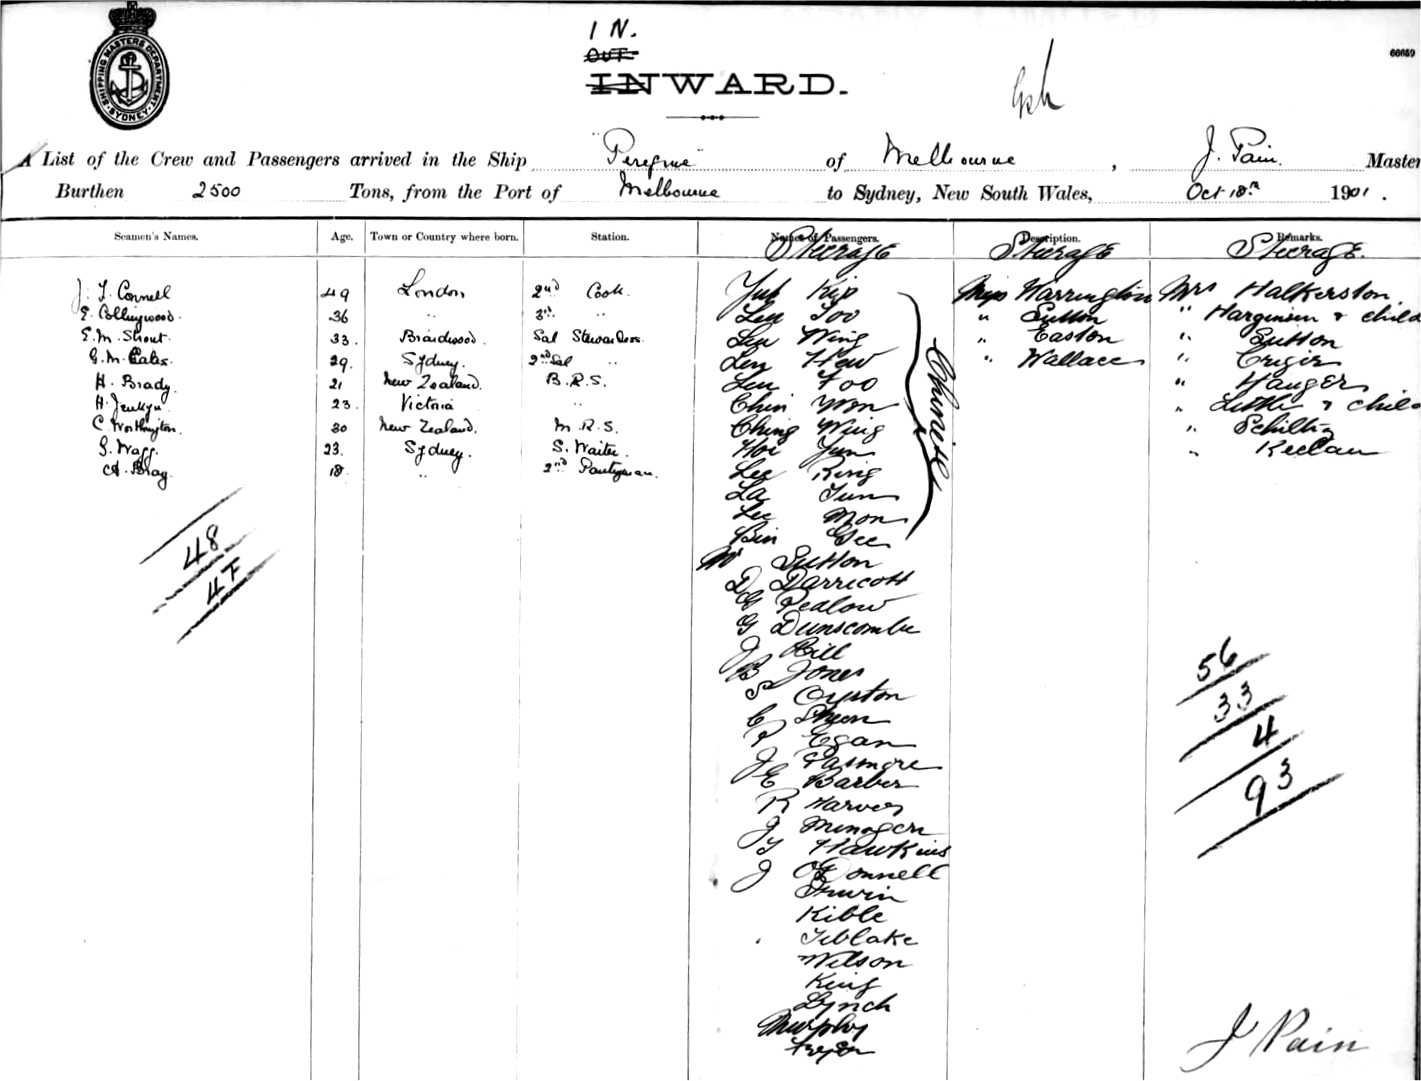 SHIPPING MASTERS DEPARTMENT
SYDNEY
1 N.
OUT
INWARD.
66659
A List of the Crew and Passengers arrived in the Ship "Peregrine" of Melbourne, J. Pain. Master
Burthen 2500 Tons, from the Port of Melbourne to Sydney, New South Wales, Oct 18th 1901.
Seamen's Names. Age. Town or Country where born. Station. Names of Passengers. Description. Remarks.
Steerage Steerage Steerage.
J. Connell 49 London 2nd Cook. Yut Kip Miss Warrington Mrs Halkerston
E. Collingwood. 36 " 3rd " Leu Too " Sutton " & child
E. M. Strout 33. Braidwood. Sal Stewardess. Leu Wing " Easton " Sutton
G. M. 29. Sydney. 2nd Sal " Hew " Wallace "
H. Brady. 21 New Zealand. B.R.S. Leu Foo " Hauger
H. 23. Victoria " Chin Won " & child
C Worthington. 30 New Zealand. M.R.S. Ching Wing "
G. Wagg. 23. Sydney. S. Waiter. Hoi Yun "
A. Bray. 18 " 2nd Pantryman. Lee King
La Tun
Lee Mon
Bin Gee
Chinese
Mr Sutton
D Darricott
G Pedlow
G Dunscombe
J Hill
B Jones
S Oyston
C
P Egan
J Pasmore
E Barber
R Harvey
J
Hawkins
J O'Donnell
Irwin
Kible
Teblake
Wilson
King
Lynch
Murphy
48
47
56
33
4
93
J Pain